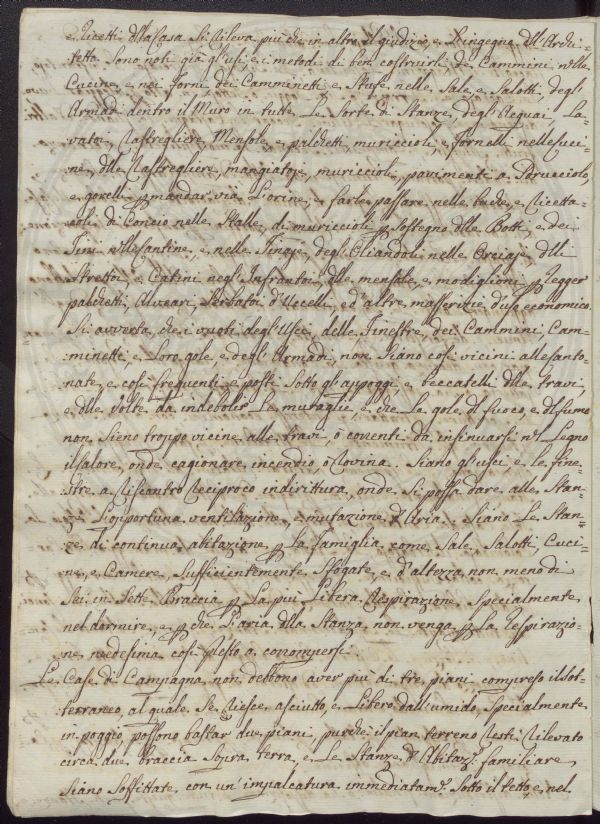 e ricetti dlla Casa si rileva più che in altro il giudizio, e l'ingegno dll'Archi-
tetto. Sono noti già gl'usi, e i metodi di ben costruirsi de Cammini nlle
Cucine, e nei Forni de Camminetti, e Stufe nelle Sale, e Salotti, degl'
Armadi dentro il Muro in tutte Le Sorte di Stanze, degl'Acquai, La-
vatoi, Rastregliere, Mensole, e palchetti, muriccioli, e fornelli nelle Cuci-
ne, dlle Rastregliere, mangiatoje, muriccioli, pavimenti a Sdrucciolo,
e gorelli p mandar via L'orine, e farle passare nelle buche, e Ricetta-
coli di Concio nelle Stalle, di muriccioli p Sostegno dlle Botti, e dei
Tini nlle Cantine, e nelle Tinaje, degl'Oliandoli nelle Orciaje, dlli
Strettoi, e Catini negl'Infrantoi, dlle mensole, e modiglioni p regger
palchetti, Alveari, Serbatoi d'Uccelli, ed altre masserizie d'uso economico.
Si avverta, che i vuoti degl'Usci, delle Finestre, dei Cammini, Cam-
minetti, e Loro gole, e degl'Armadi, non siano così vicini alle Canto-
nate, e così frequenti, e posti Sotto gl'appoggi, e beccatelli dlle travi,
e dlle Volte da indebolir Le muraglie, e che Le gole dl fuoco, e dl fumo
non Sieno troppo vicine alle travi, o correnti da insinuarsi nl Legno
il calore, onde cagionare incendio, o Rovina. Siano gl'usci e le fine-
stre a Riscontro reciproco indirittura, onde Si possa dare alle Stan-
ze L'opportuna ventilazione, e mutazione d'Aria. Siano Le Stan-
ze di continua abitazione p La famiglia, come Sale, Salotti, Cuci-
ne, e Camere, Sufficientemente Sfogate, e d'altezza non meno di
Sei in Sette Braccia p La più Libera Respirazione, Specialmente
nel dormire, e p che L'aria dlla Stanza non venga p La respirazio-
ne medesima così presto a corrompersi.
Le Case di Campagna non debbono aver più di tre piani compreso il sot-
terraneo, al quale Se riesce asciutto, e Libero dall'umido, Specialmente
in poggio, possono bastar due piani, purche il pian terreno resti rilevato
circa due Braccia Sopra terra, e Le Stanze d'Abitaz.e familiare
Siano Soffittate con un'impalcatura immediatam.e Sotto il tetto, e nel